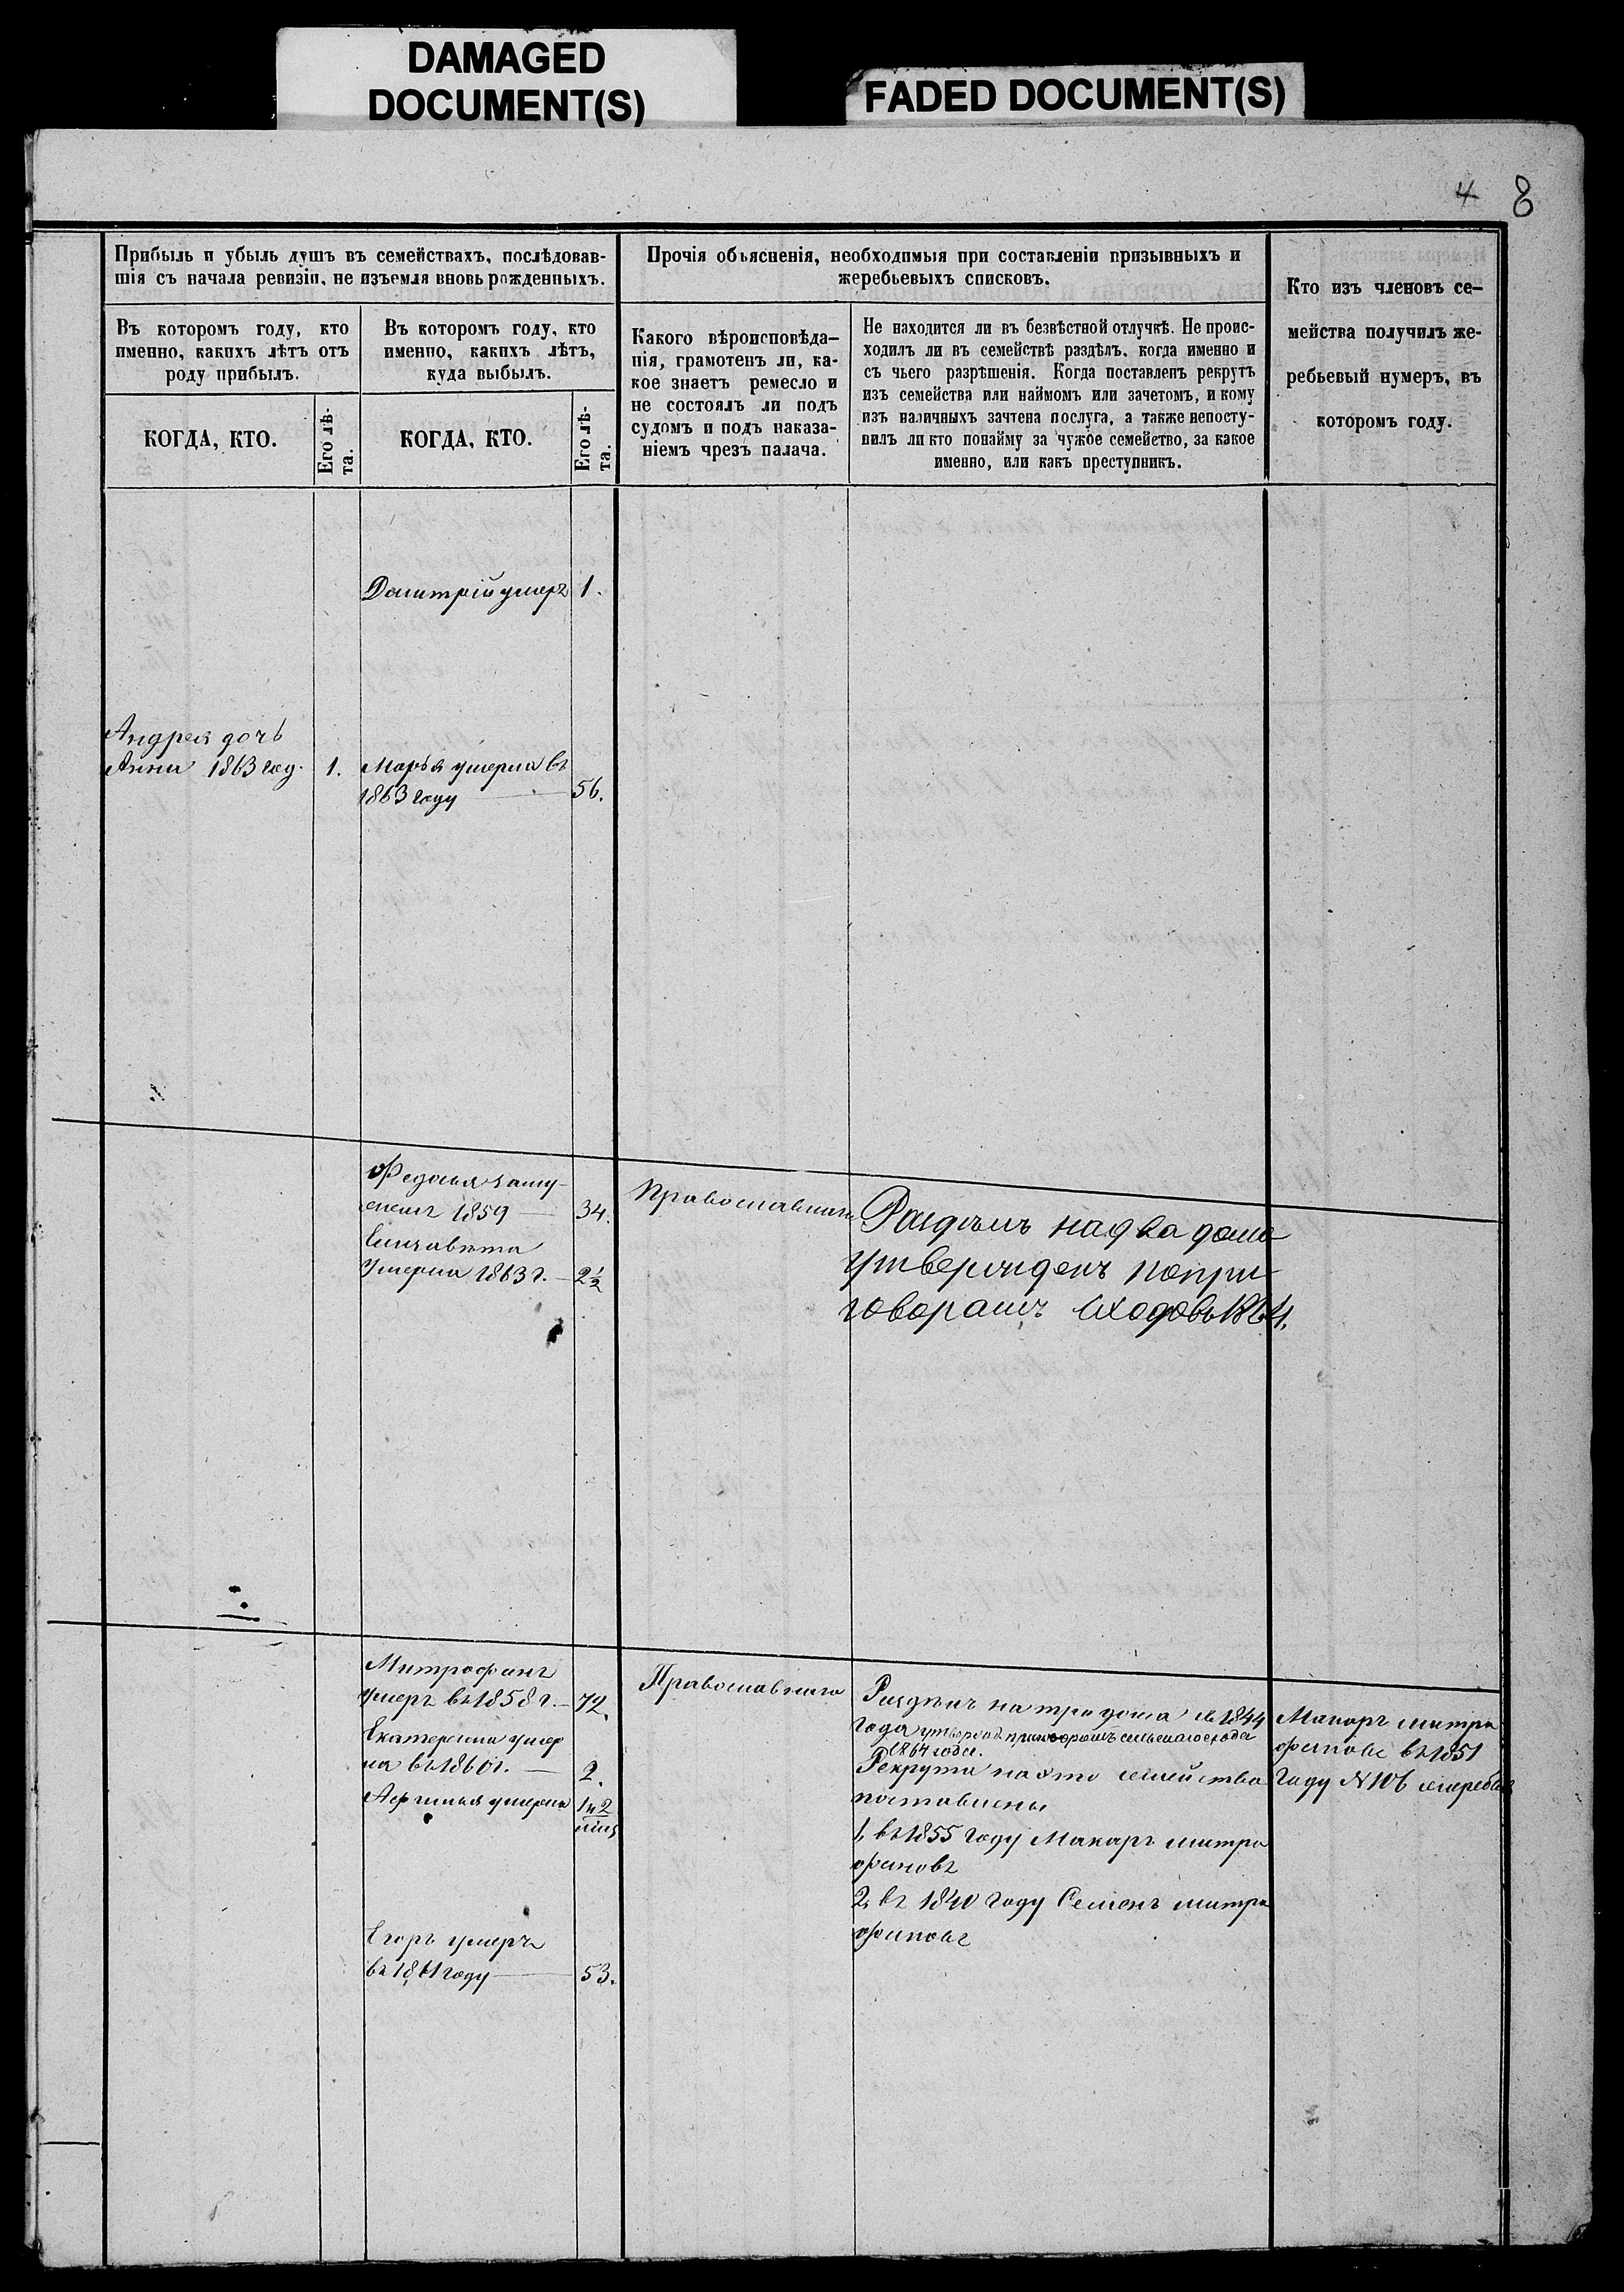 DAMAGED
DOCUMENT(S)
FADED DOCUMENT(S)
4 8
Прибыль и убыль душъ въ семействахъ, послѣдовав-
шія съ начала ревизіи, не изъемля вновь рожденныхъ.
Въ которомъ году, кто
именно, какихъ лѣтъ отъ
роду прибылъ.
Въ которомъ году, кто
именно, какихъ лѣтъ,
куда выбылъ.
КОГДА, КТО.
Его лѣ-
та.
КОГДА, КТО.
Его лѣ-
та.
Прочія обьясненія, необходимыя при составленіи призывныхъ и
жеребьевыхъ списковъ.
Какого вѣроисповѣда-
нія, грамотенъ ли, ка-
кое знаетъ ремесло и
не состоялъ ли подъ
судомъ и подъ наказа-
ніемъ чрезъ палача.
Не находится ли въ безвѣстной отлучкѣ. Не проис-
ходилъ ли въ семействѣ раздѣлъ, когда именно и
съ чьего разрѣшенія. Когда поставленъ рекрутъ
изъ семейства или наймомъ или зачетомъ, и кому
изъ наличныхъ зачтена послуга, а также непосту-
пилъ ли кто понайму за чужое семейство, за какое
именно, или какъ преступникъ.
Кто изъ членовъ се-
мейства получилъ же-
ребьевый нумеръ, въ
которомъ году.
Дмитрій умеръ 1.
Андрея дочь
Анна 1863 году. 1.
Марья умерла въ
1863 году 56.
Федосья заму-
жемъ 1859 34.
Елизавета
умерла 1863 г. 2½
Православнаго
Раздѣлъ на два дома
утвержденъ попри-
говорамъ сходовъ 1864.
Митрофанъ
умеръ въ 1858 г. 72.
Екатерина умер
ла въ 1860 г. 2.
умерла 1 и 2
мѣс
Егоръ умеръ
въ 1861 году 53.
Православнаго
Раздѣлъ на три дома съ 1844
года приговоромъ сельскаго схода
1864 года.
Рекрута на это семейство
поставлены
1, въ 1855 году Макаръ митро
фановъ
2, въ 1840 году Семенъ митро
фановъ
Макаръ митро
фановъ въ 1851
году N 106 жеребья